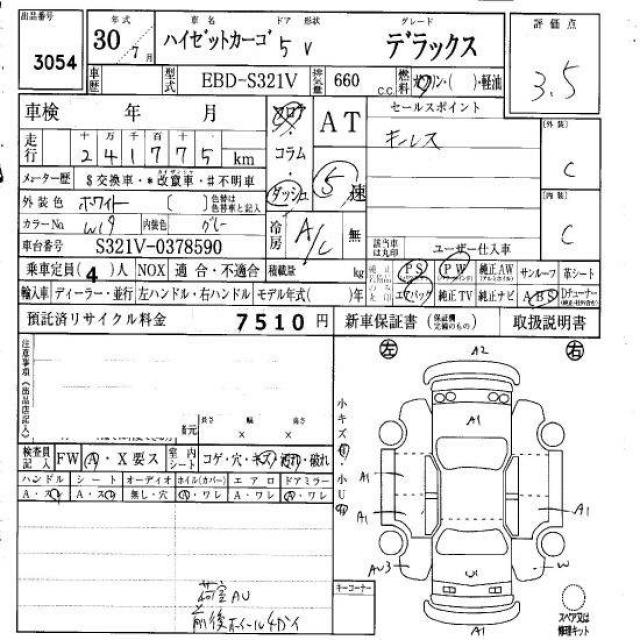 出品番号 年式 車名 ドア 形状 グレード 評価点
3054 30年 7月 ハイゼットカーゴ 5 V デラックス 3.5
車歴 型式 EBD-S321V 排気量 660 C.C. 燃料 ガソリン・( )・軽油
車検 年 月 フロア AT セールスポイント
キーレス
[外装]
C
走行 十 万 千 百 十
2 4 1 7 7 5 km
コラム
5 速
メーター歴 $交換車・*改竄車・#不明車 ダッシュ
[内装]
C
外装色 ホワイト ( ) 色替は色替車と記入
カラーNo. W19 内装色 グレー
冷房 A/C 無
車台番号 S321V-0378590
該当車は丸印 ユーザー仕入車
乗車定員(4)人 NOX 適合・不適合 積載量 kg
PS PW 純正AW サンルーフ 革シート
輸入車 ディーラー・並行 左ハンドル・右ハンドル モデル年式( )年
エアバッグ 純正TV 純正ナビ ABS Dチューナー
預託済リサイクル料金 7510円 新車保証書 (保証欄完備のもの) 取扱説明書
注意事項(出品店記入)
左 右
A2
諸元 長さ 幅 高さ
× ×
小キズ 小U
A1
検査員記入 FW A・X要ス 室内シート コゲ・穴・キズ・汚れ・破れ
ハンドル シート オーディオ ホイル(カバー) エアロ ドアミラー
A・スレ A・スレ 無し・穴 A・ワレ A・ワレ A・ワレ
A1
A1
A1
AU3
U1
W
荷室AU
前後ホイール4カイ
キーコーナー
A1
スペア又は修理キット